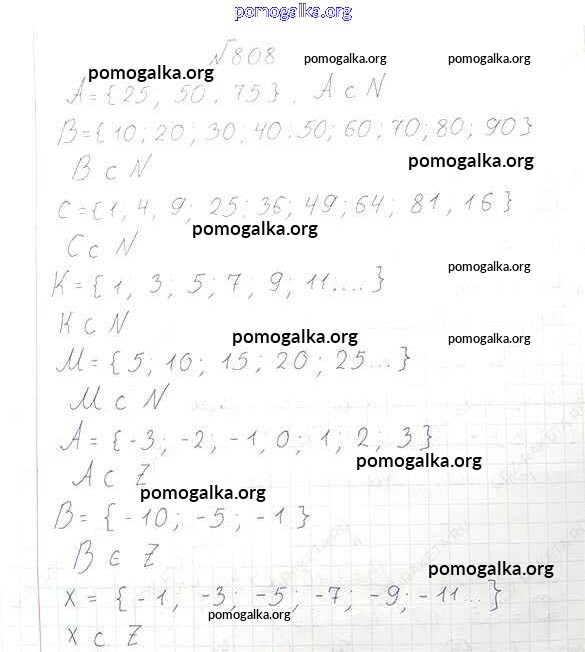 pomogalka.org
№808
pomogalka.org
pomogalka.org
pomogalka.org
A={25; 50. 75}. A ⊂ N
B={10; 20; 30; 40; 50; 60; 70; 80; 90}
B ⊂ N
pomogalka.org
C={1, 4, 9; 25; 36; 49; 64; 81, 16}
pomogalka.org
C ⊂ N
pomogalka.org
K={1, 3; 5; 7; 9; 11....}
K ⊂ N
pomogalka.org
pomogalka.org
M={5; 10; 15; 20; 25...}
M ⊂ N
A={-3; -2; -1, 0; 1; 2; 3}
pomogalka.org
A ⊂ Z
pomogalka.org
B={-10; -5; -1}
B ∈ Z
pomogalka.org
X={-1, -3; -5; -7; -9; -11...}
pomogalka.org
X ⊂ Z